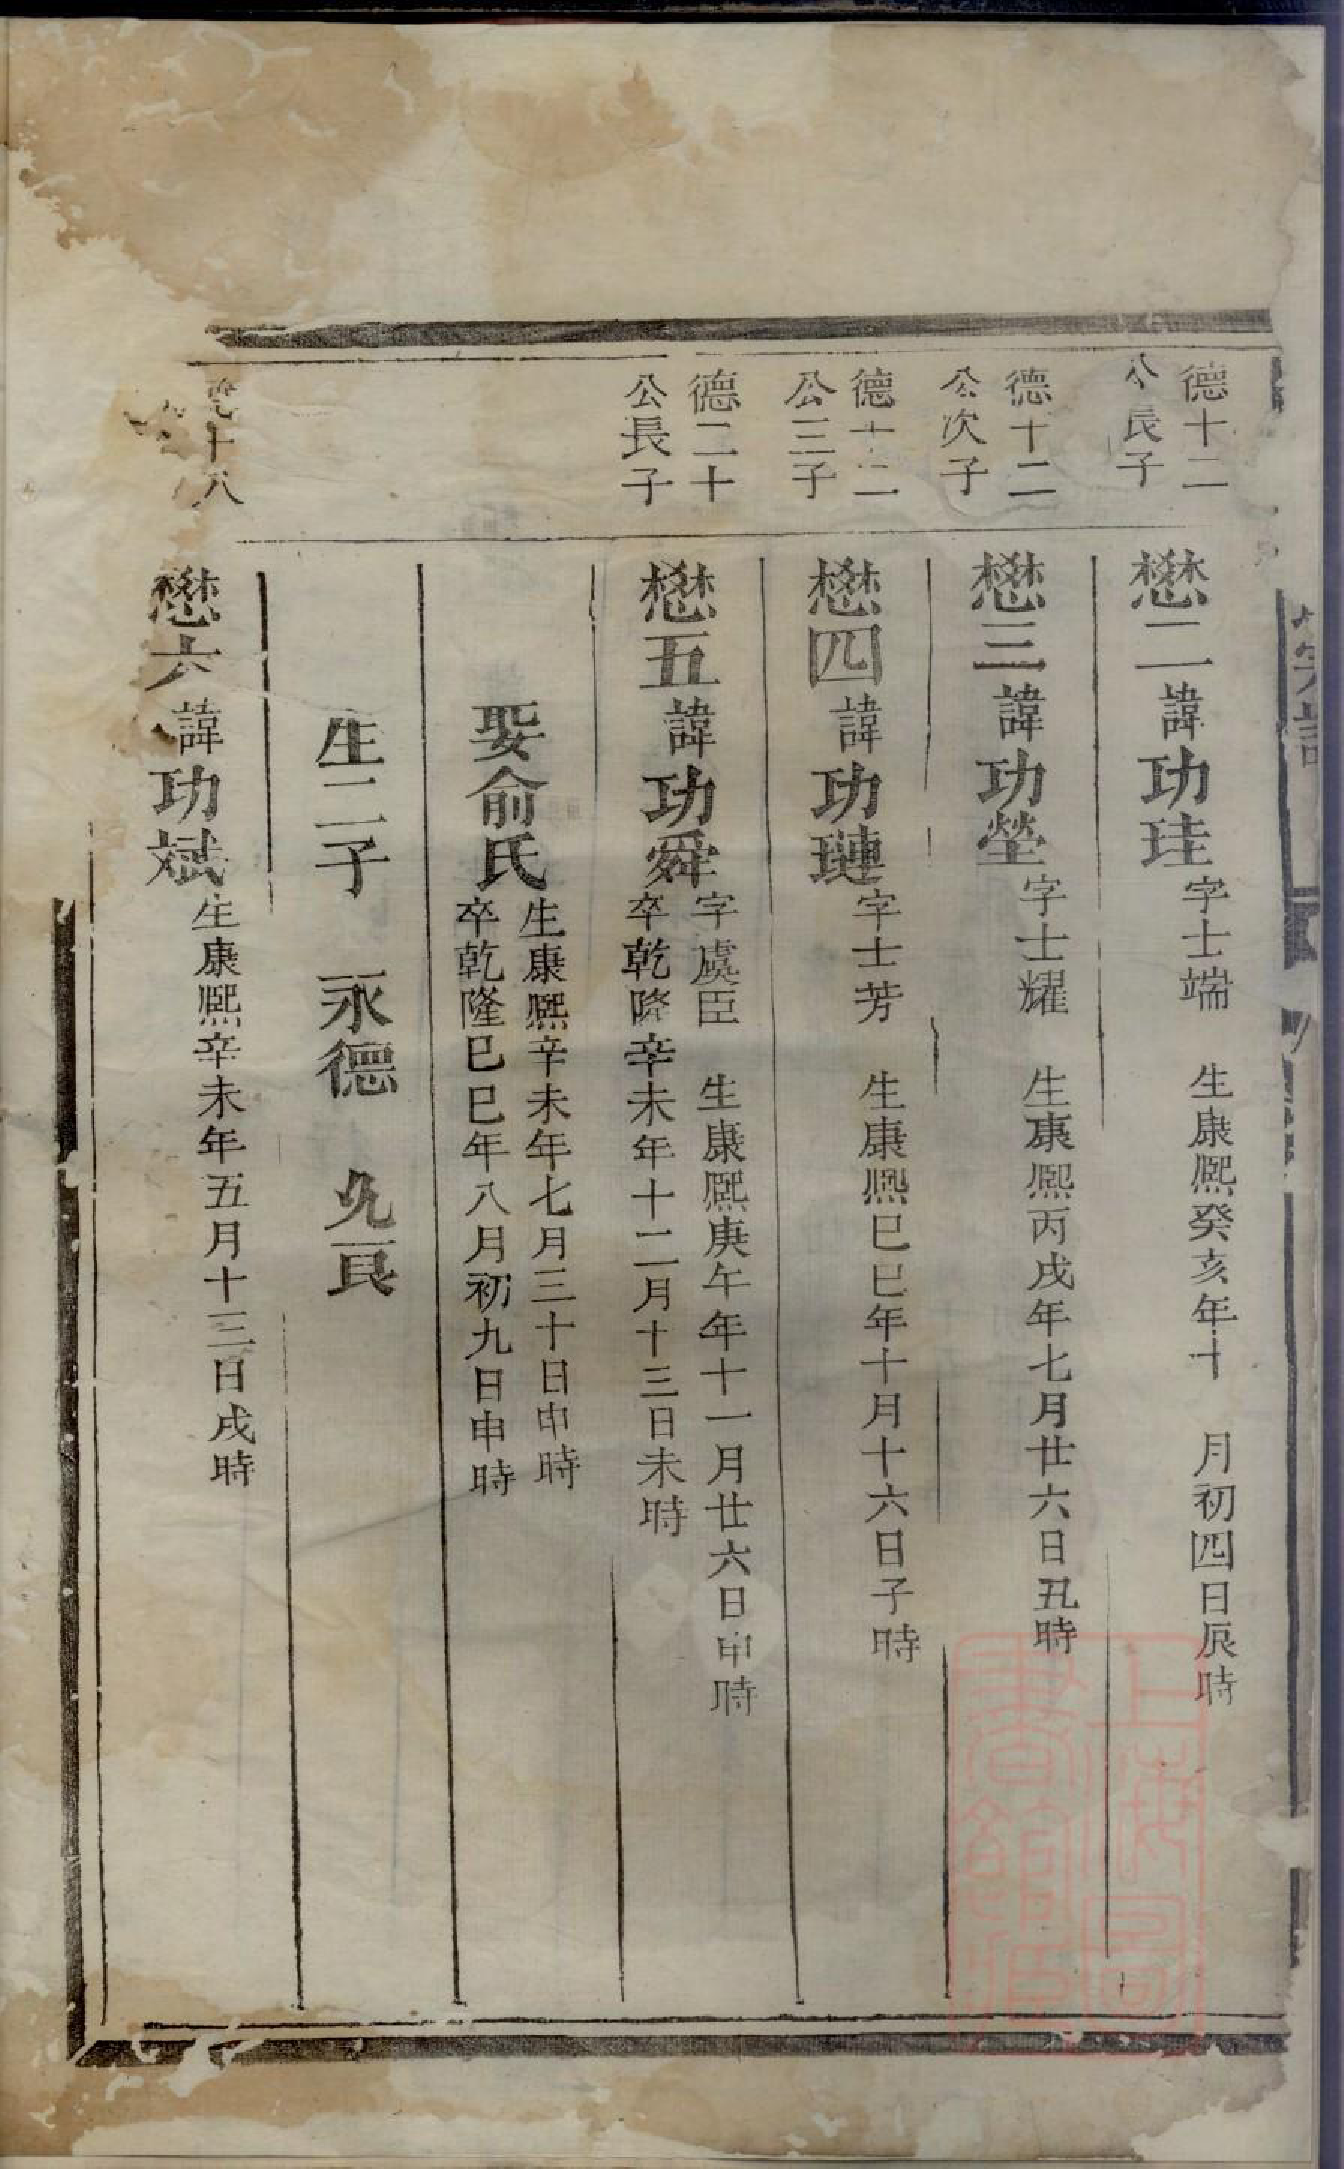 德十二
公長子
懋二諱功珪
字士端　生康熙癸亥年十　月初四日辰時
德十二
公次子
懋三諱功塋
字士耀　生康熙丙戌年七月廿六日丑時
德十二
公三子
懋四諱功璉
字士芳　生康熙巳巳年十月十六日子時
德二十
公長子
懋五諱功舜
字虞臣　生康熙庚午年十一月廿六日申時
卒乾隆辛未年十二月十三日未時
娶俞氏
生康熙辛未年七月三十日申時
卒乾隆巳巳年八月初九日申時
生二子　永德　允良
十八
懋六諱功斌
生康熙辛未年五月十三日戌時
上海圖
書館藏